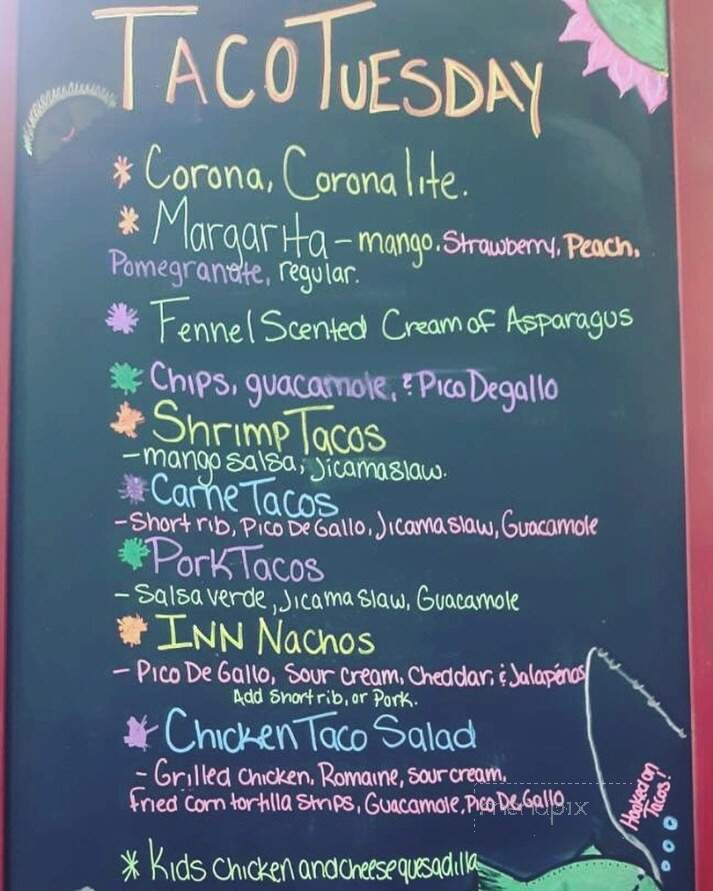 TACO TUESDAY
* Corona, Corona lite.
* Margarita - mango, Strawberry, Peach,
Pomegranate, regular.
Fennel Scented Cream of Asparagus
Chips, guacamole, & Pico Degallo
Shrimp Tacos
- mango salsa, Jicama slaw.
Carne Tacos
- Short rib, Pico De Gallo, Jicama slaw, Guacamole
Pork Tacos
- Salsa verde, Jicama Slaw, Guacamole
INN Nachos
- Pico De Gallo, Sour cream, Cheddar, & Jalapeños
Add Short rib, or Pork.
Chicken Taco Salad
- Grilled chicken, Romaine, sour cream,
Fried corn tortilla strips, Guacamole, Pico De Gallo
menupix
Hooked on
Tacos!
* Kids chicken and cheese quesadilla